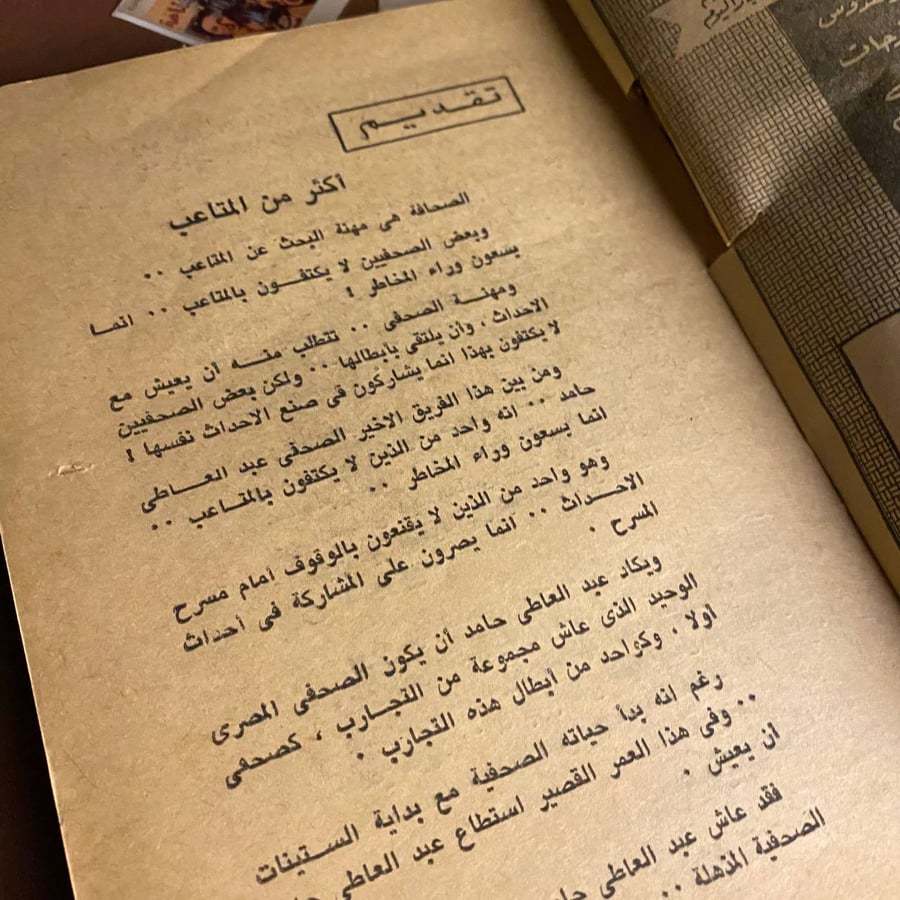 تقديم
أكثر من المتاعب
الصحافة هى مهنة البحث عن المتاعب ..
وبعض الصحفيين لا يكتفــون بالمتاعب .. انما
يسعون وراء المخاطر !
ومهنــة الصحفى .. تتطلب منــه أن يعيش مع
الاحداث ، وأن يلتقى بابطالها .. ولكن بعض الصحفيين
لا يكتفون بهذا انما يشاركون فى صنع الاحداث نفسها !
ومن بين هذا الفريق الاخير الصحفى عبد العــاطى
حامد .. انه واحد من الذين لا يكتفون بالمتــاعب ..
انما يسعون وراء المخاطر ..
وهو واحد من الذين لا يقنعون بالوقوف أمام مسرح
الاحــداث .. انما يصرون على المشاركة فى أحداث
المسرح .
ويكاد عبد العاطى حامد أن يكون الصحفى المصرى
الوحيد الذى عاش مجموعة من التجــارب ، كصحفى
أولا ، وكواحد من أبطال هذه التجارب .
رغم انه بدأ حياته الصحفية مع بداية الســتينات
.. وفى هذا العمر القصير استطاع عبد العاطى
ان يعيش .
فقد عاش عبد العاطى
الصحفية المذهلة ..